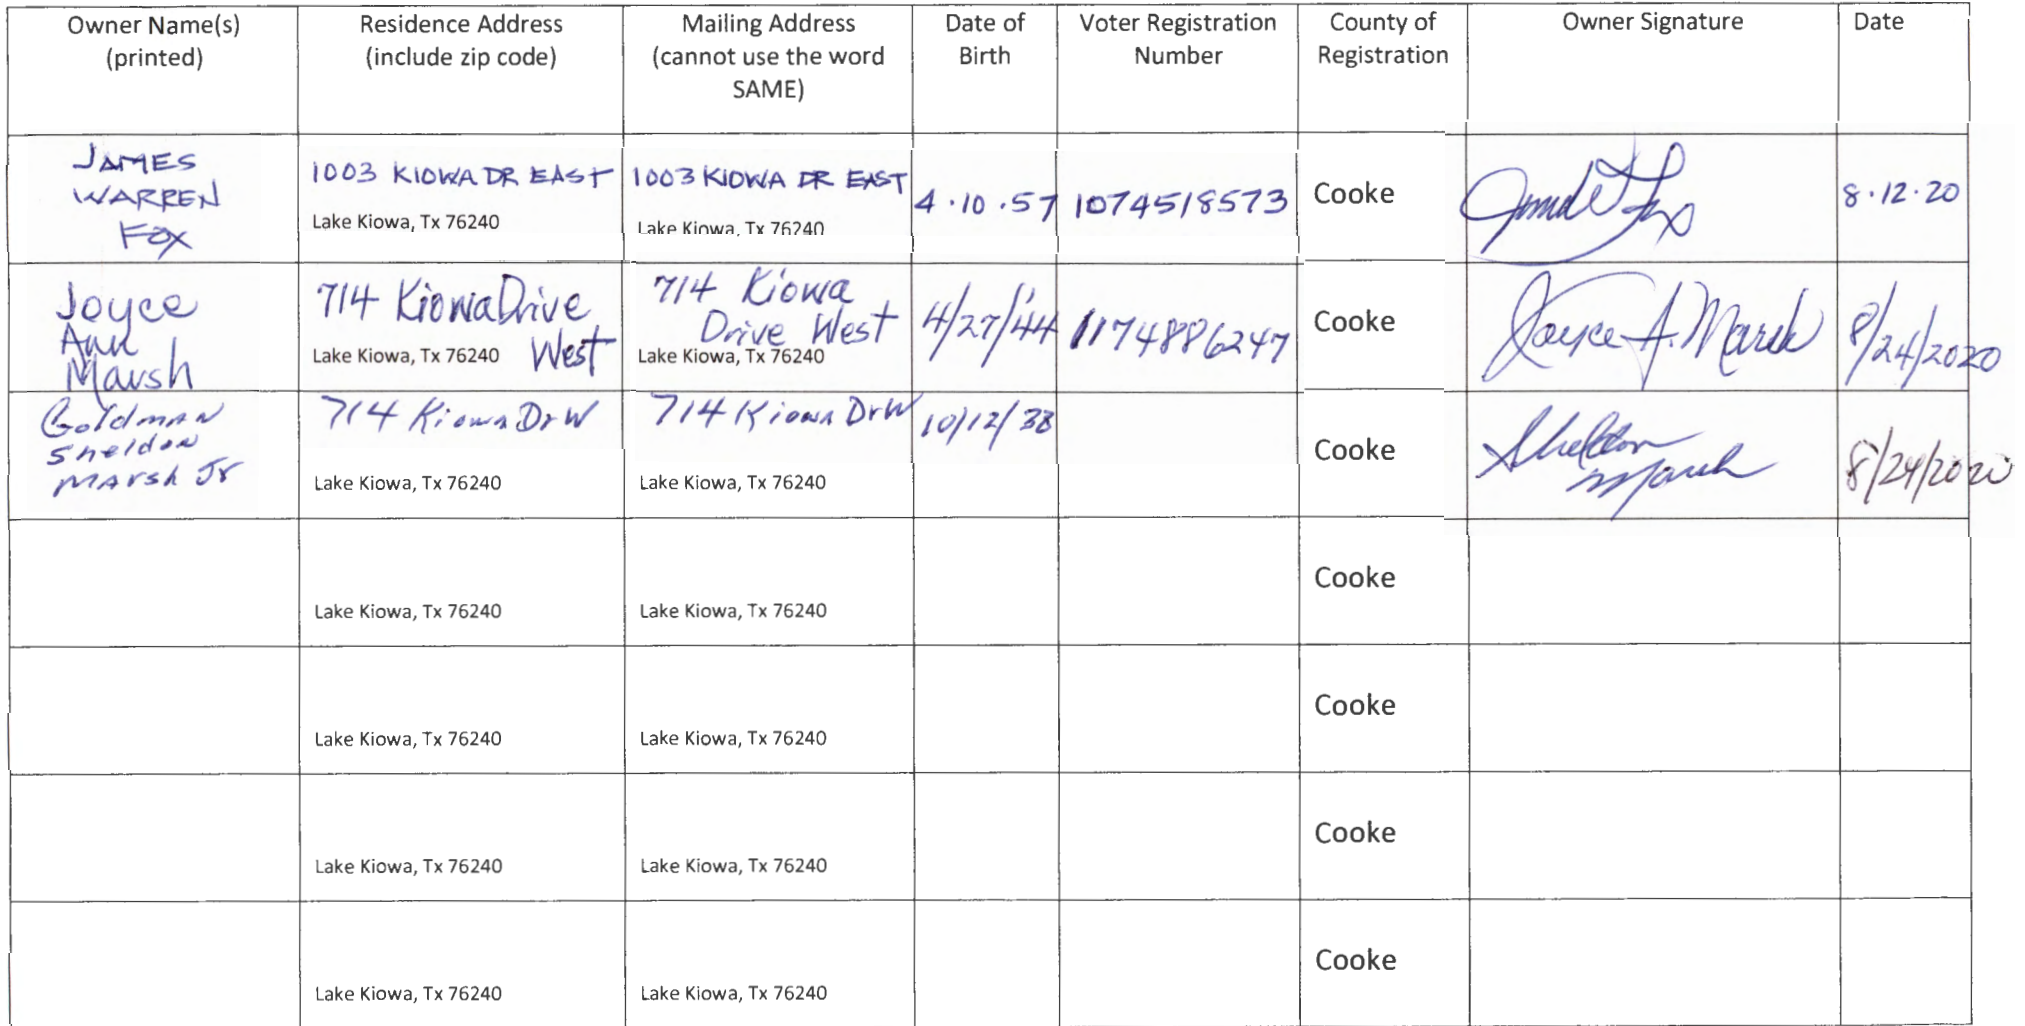 Owner Name(s)
(printed)
Residence Address
(include zip code)
Mailing Address
(cannot use the word
SAME)
Date of
Birth
Voter Registration
Number
County of
Registration
Owner Signature
Date
JAMES
WARREN
FOX
1003 KIOWA DR EAST
Lake Kiowa, Tx 76240
1003 KIOWA DR EAST
Lake Kiowa, Tx 76240
4.10.57
1074518573
Cooke
8.12.20
Joyce
Ann
Marsh
714 Kiowa Drive
West
Lake Kiowa, Tx 76240
714 Kiowa
Drive West
Lake Kiowa, Tx 76240
4/27/44
1174886247
Cooke
Joyce A. Marsh
8/24/2020
Goldman
Sheldon
Marsh Jr
714 Kiowa Dr W
Lake Kiowa, Tx 76240
714 Kiowa Dr W
Lake Kiowa, Tx 76240
10/12/38
Cooke
Sheldon
Marsh
8/24/2020
Lake Kiowa, Tx 76240
Lake Kiowa, Tx 76240
Cooke
Lake Kiowa, Tx 76240
Lake Kiowa, Tx 76240
Cooke
Lake Kiowa, Tx 76240
Lake Kiowa, Tx 76240
Cooke
Lake Kiowa, Tx 76240
Lake Kiowa, Tx 76240
Cooke